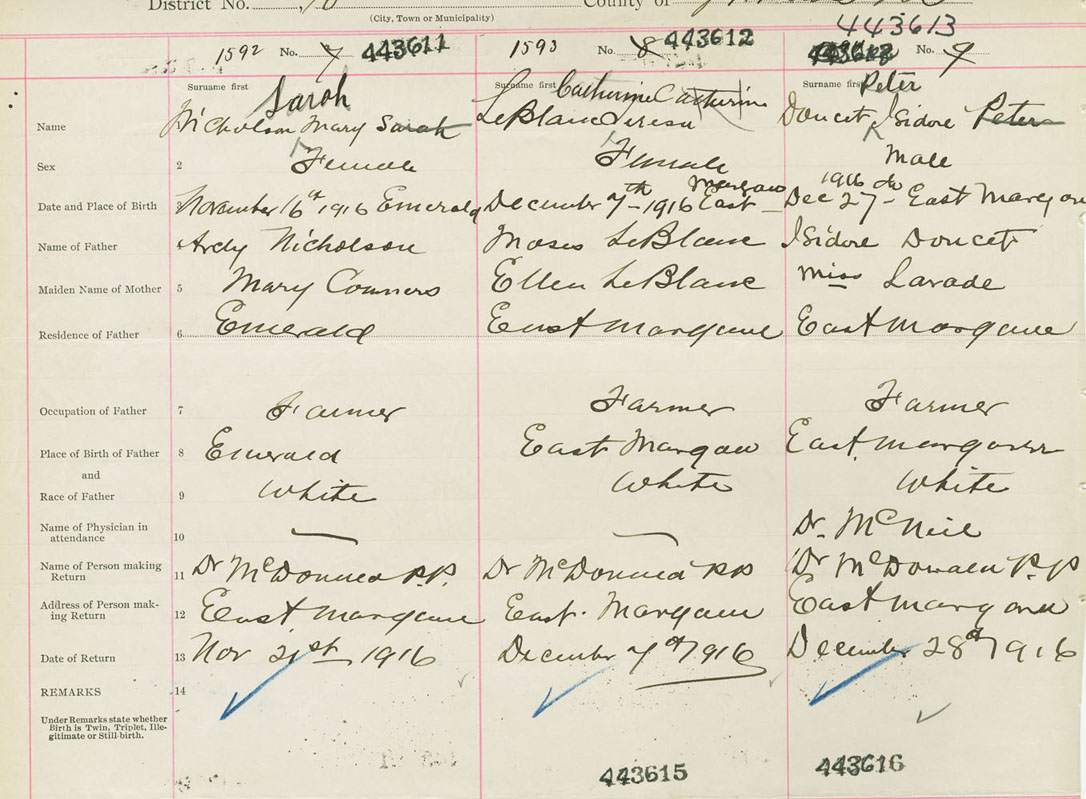 District No. County of
(City, Town or Municipality)
443613
1592 No. 7 443611 1593 No. 8 443612 No. 9
Surname first Surname first Surname first
Sarah Catherine Catherine Peter
Name Nicholson Mary Sarah LeBlanc Teresa Doucet Isidore Peter
Sex 2 Female Female Male
Date and Place of Birth 3 November 16th 1916 Emerald December 7th 1916 East Margaree Dec 27th 1916 East Margaree
Name of Father 4 Ardy Nicholson Moses LeBlanc Isidore Doucet
Maiden Name of Mother 5 Mary Connors Ellen LeBlanc Miss Lavade
Residence of Father 6 Emerald East Margaree East Margaree
Occupation of Father 7 Farmer Farmer Farmer
Place of Birth of Father 8 Emerald East Margaree East Margaree
and
Race of Father 9 White White White
Name of Physician in
attendance 10 Dr. McNeil
Name of Person making
Return 11 Dr McDonald P.P. Dr McDonald P.P Dr McDonald P.P
Address of Person mak-
ing Return 12 East Margaree East Margaree East Margaree
Date of Return 13 Nov 21st 1916 December 7th 1916 December 28th 1916
REMARKS 14
Under Remarks state whether
Birth is Twin, Triplet, Ille-
gitimate or Still-birth.
443615 443616